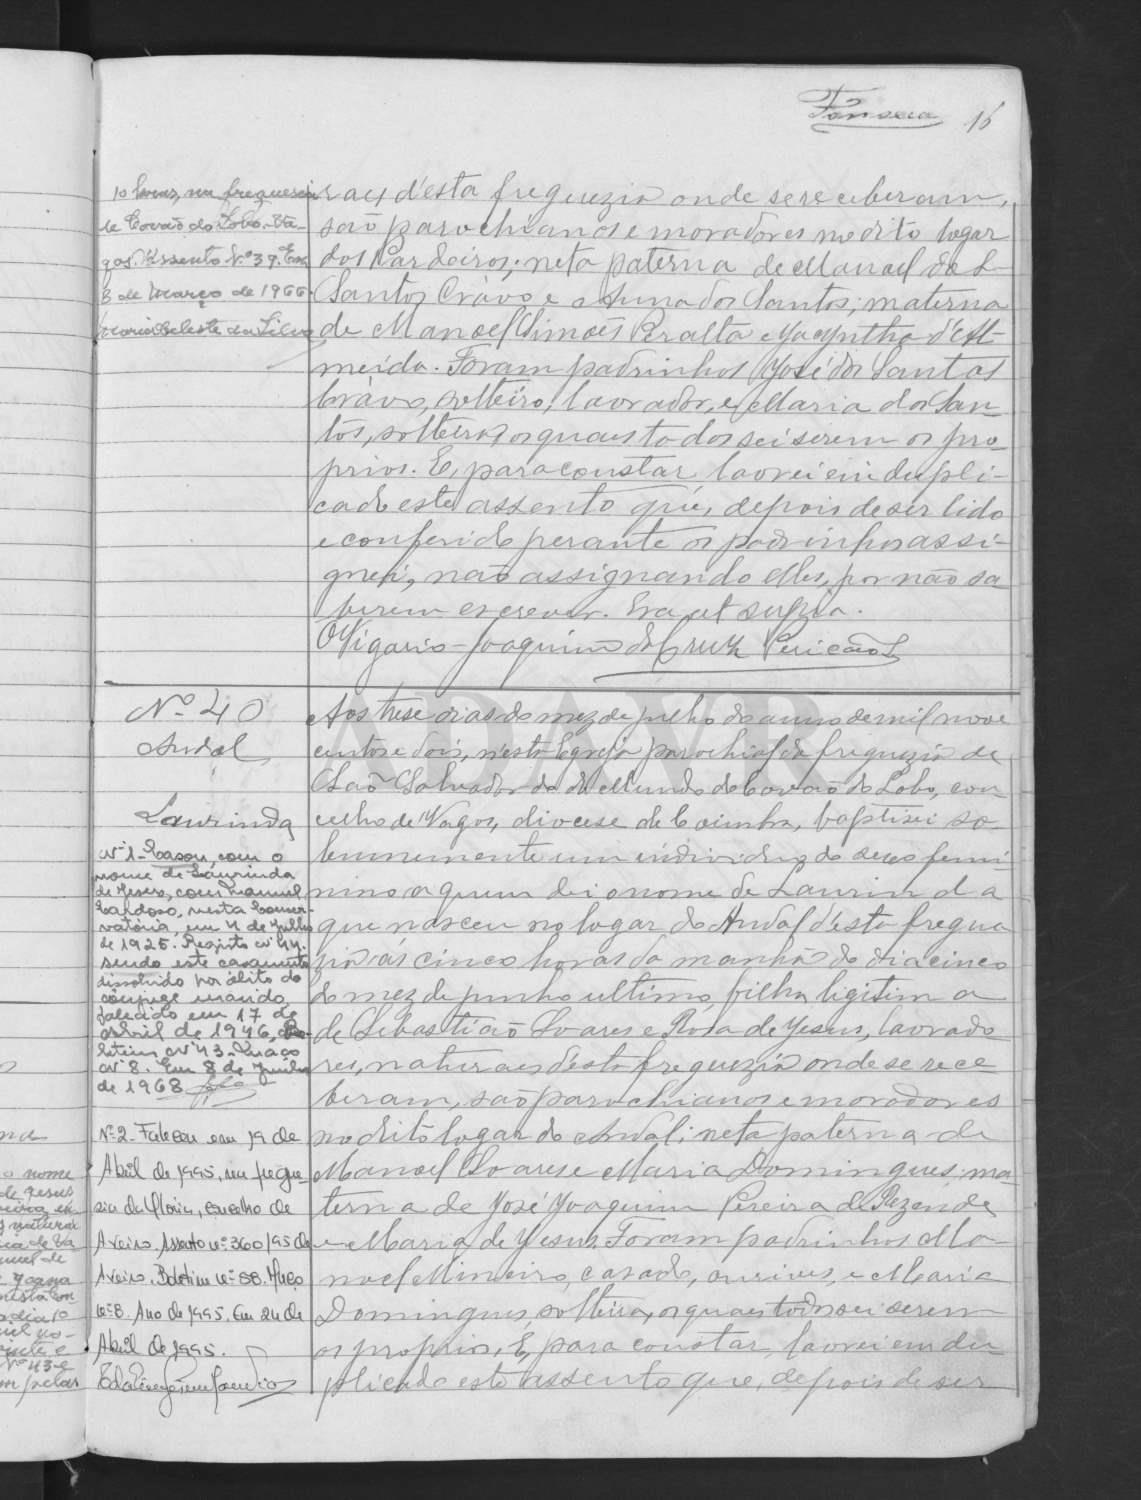 Fonseca 16
10 horas, na freguesia
de Covão do Lobo - Va-
gos. Assento Nº 39. Em
3 de Março de 1966.
Maria Celeste da Silva
raes d'esta freguezia onde se receberam,
são parochianos e moradores no dito logar
dos Cardeiros; neta paterna de Manoel dos
Santos Crávo e Anna dos Santos; materna
de Manoel Simões Peralta e Jacyntha d'Al-
meida. Foram padrinhos José dos Santos
Crávo, solteiro, lavrador, e Maria dos San-
tos, solteira, os quaes todos sei serem os pro-
prios. E, para constar lavrei em dupli-
cado este assento que, depois de ser lido
e conferido perante os padrinhos assi-
gnei, não assignando elles, por não sa-
berem escrever. Era ut supra.
O Vigario - Joaquim da Cruz Pericão
Nº 40
Andal
Laurinda
Nº 1 - Casou, com o
nome de Laurinda
de Jesus, com Manuel
Cardoso, nesta Conser-
vatória, em 4 de Julho
de 1925. Registo nº 44.
sendo este casamento
dissolvido por óbito do
cônjuge marido,
falecido em 17 de
abril de 1946, Bo-
letim Nº 43 - Maço
Nº 8. Em 8 de Junho
de 1968
Nº 2 - Faleceu em 19 de
Abril de 1995, na fregue-
sia da Glória, concelho de
Aveiro. Assento nº 360/95 de
Aveiro. Boletim nº 58. Maço
nº 8. Ano de 1995. Em 24 de
Abril de 1995.
Aos trese dias do mez de julho do anno de mil nove
centos e dois, n'esta Egreja parochial da freguezia de
São Salvador do Mundo de Covão do Lobo, con-
celho de Vagos, diocese de Coimbra, baptisei so-
lemnemente um individuo do sexo femi-
nino a quem dei o nome de Laurinda
que nasceu no logar do Andal d'esta fregue
zia ás cinco horas da manhã do dia cinco
do mez de junho ultimo, filha ligitima
de Sebastião Soares e Rosa de Jesus, lavrado
res, naturaes d'esta freguezia onde se rece
beram, são parochianos e moradores
no dito logar do Andal; neta paterna de
Manoel Soares e Maria Domingues; ma-
terna de José Joaquim Pereira de Rezende
e Maria de Jesus. Foram padrinhos Ma-
noel Mineiro, casado, ourives, e Maria
Domingues, solteira, os quaes todos sei serem
os proprios. E, para constar lavrei em du-
plicado este assento que, depois de ser
ADAVR